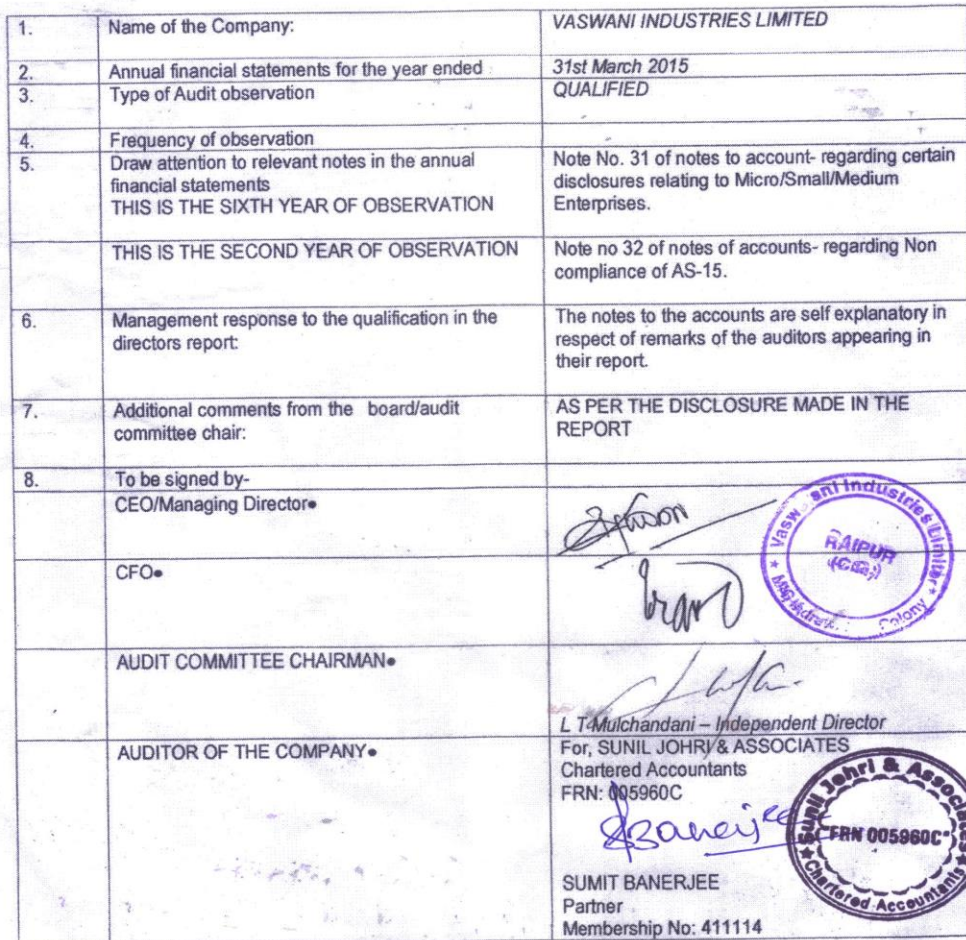 1. Name of the Company: VASWANI INDUSTRIES LIMITED
2. Annual financial statements for the year ended 31st March 2015
3. Type of Audit observation QUALIFIED
4. Frequency of observation
5. Draw attention to relevant notes in the annual
financial statements
THIS IS THE SIXTH YEAR OF OBSERVATION
Note No. 31 of notes to account- regarding certain
disclosures relating to Micro/Small/Medium
Enterprises.
THIS IS THE SECOND YEAR OF OBSERVATION
Note no 32 of notes of accounts- regarding Non
compliance of AS-15.
6. Management response to the qualification in the
directors report:
The notes to the accounts are self explanatory in
respect of remarks of the auditors appearing in
their report.
7. Additional comments from the board/audit
committee chair:
AS PER THE DISCLOSURE MADE IN THE
REPORT
8. To be signed by-
CEO/Managing Director●
Industries Limited
RAIPUR
Colony
CFO●
AUDIT COMMITTEE CHAIRMAN●
L T Mulchandani – Independent Director
AUDITOR OF THE COMPANY●
For, SUNIL JOHRI & ASSOCIATES
Chartered Accountants
FRN: 005960C
SBanerjee
Sunil Johri & Associates
FRN 005960C
Chartered Accountants
SUMIT BANERJEE
Partner
Membership No: 411114